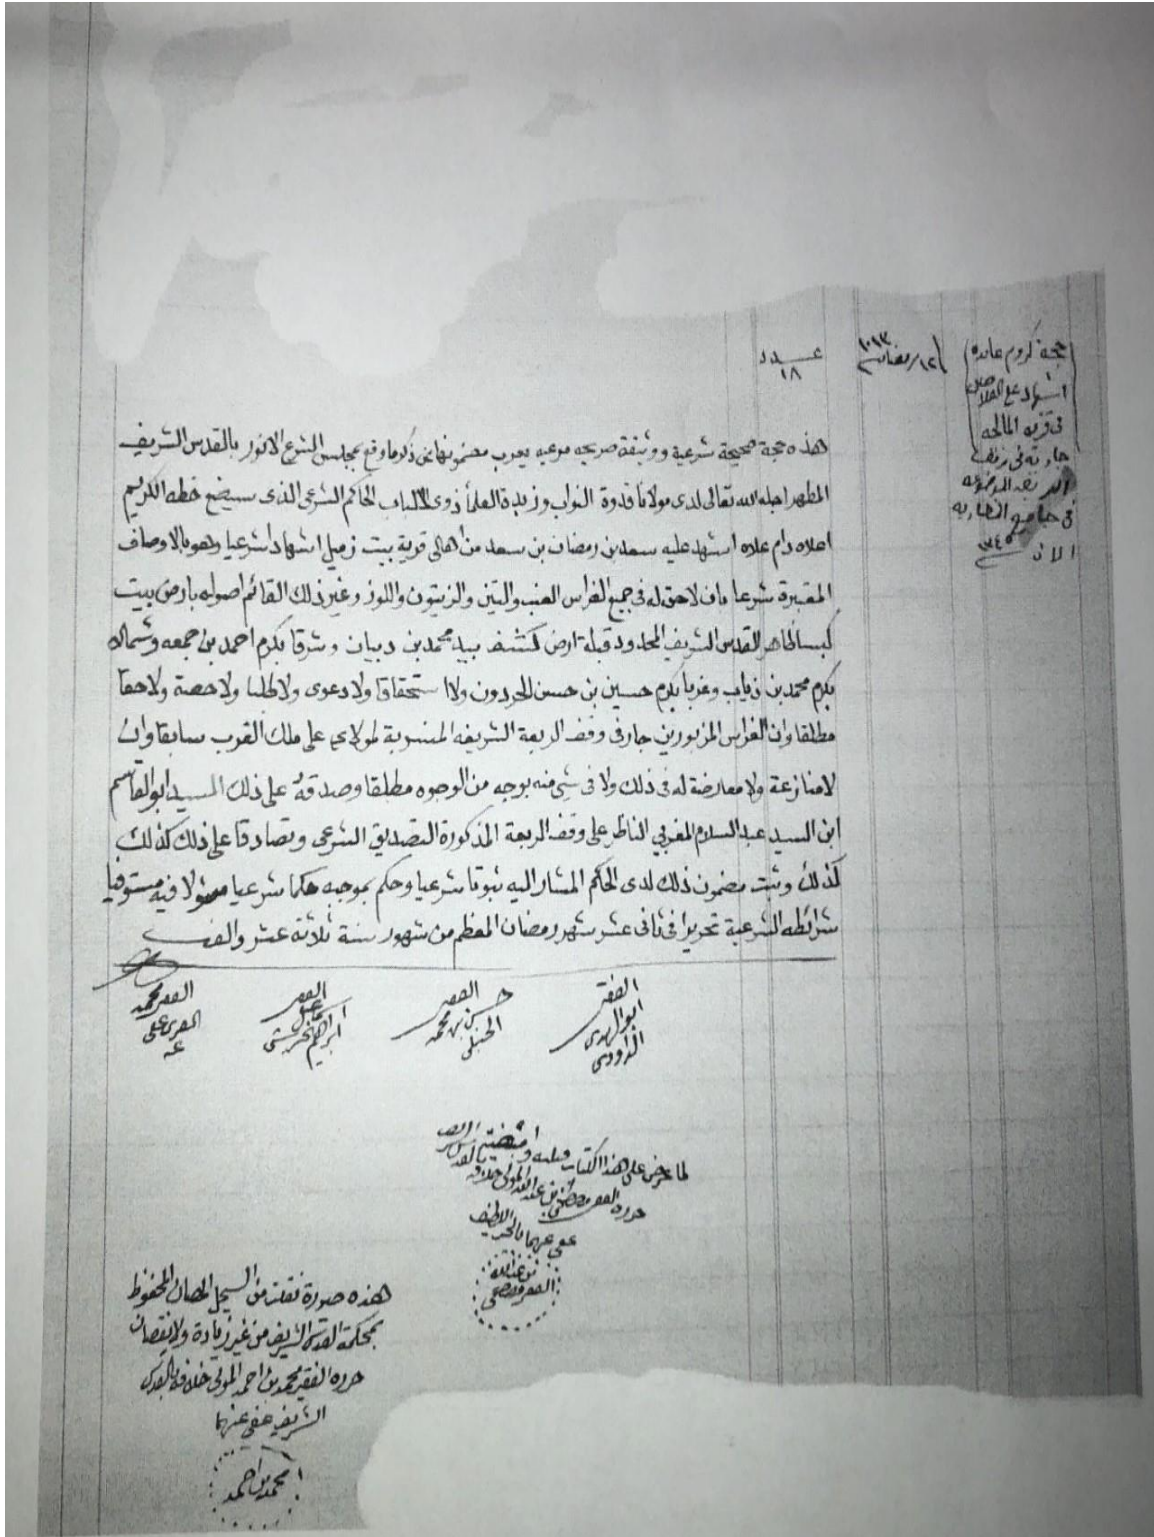 حجة كروم عائده
اشهاد على الفلاحين
في قرية المالحه
جارية في وقف
الموضوعه
في جامع المغاربه
الان ١٣٤٥
١٢ رمضان ١٠١٣
عدد
١٨
هذه حجة صحيحة شرعية ووثيقة صريحه مرعيه يعرب مضمونها عن ذكر ما وقع بمجلس الشرع الانور بالقدس الشريف
المطهر اجله الله تعالى لدى مولانا قدوة النواب وزبدة العلماء ذوى الالباب الحاكم الشرعى الذى سيضع خطه الكريم
اعلاه دام علاه اشهد عليه سعد بن رمضان بن سعد من اهالى قرية بيت زميل اشهادا شرعيا وهو بالاوصاف
المعتبرة شرعا بان لا حق له فى جميع الغراس العنب والتين والزيتون واللوز وغير ذلك القائم اصوله بارض بيت
كبسا ظاهر القدس الشريف المحدود قبلة ارض كشف بيد محمد بن دبيان وشرقا بكرم احمد بن جمعه وشمالا
بكرم محمد بن ذياب وغربا بكرم حسين بن حسن الحردون ولا استحقاقا ولا دعوى ولا طلبا ولا حصة ولا حقا
مطلقا وان الغراس المزبورين جار فى وقف الربعة الشريفه المنسوبة لمولاي على ملك الغرب سابقا وان
لا منازعة ولا معارضة له فى ذلك ولا فى شئ منه بوجه من الوجوه مطلقا وصدقه على ذلك السيد ابو القاسم
ابن السيد عبد السلام المغربي الناظر على وقف الربعة المذكورة التصديق الشرعى وتصادقا على ذلك كذلك
كذلك وثبت مضمون ذلك لدى الحاكم المشار اليه ثبوتا شرعيا وحكم بموجبه حكما شرعيا مسئولا فيه مستوفيا
شرائطه الشرعية تحريرا فى ثانى عشر شهر رمضان المعظم من شهور سنة ثلاثة عشر والف
الفقير
ابو الهدى
الداودى
الفقير
حسن بن محمد
الحنبلى
الفقير
ابراهيم
الفقير محمد
عفى
عنه
لما عرض على هذا الكتاب قبلته وامضيته
حرره الفقير مصطفى بن عبد الله المولى خلافة
بالقدس الشريف
عفى عنهما
بن عبد الله
الفقير مصطفى
هذه صورة نقلت من السجل المصان المحفوظ
بمحكمة القدس الشريف من غير زيادة ولا نقصان
حرره الفقير محمد بن احمد المولى خلافة بالقدس
الشريف عفى عنهما
محمد بن احمد